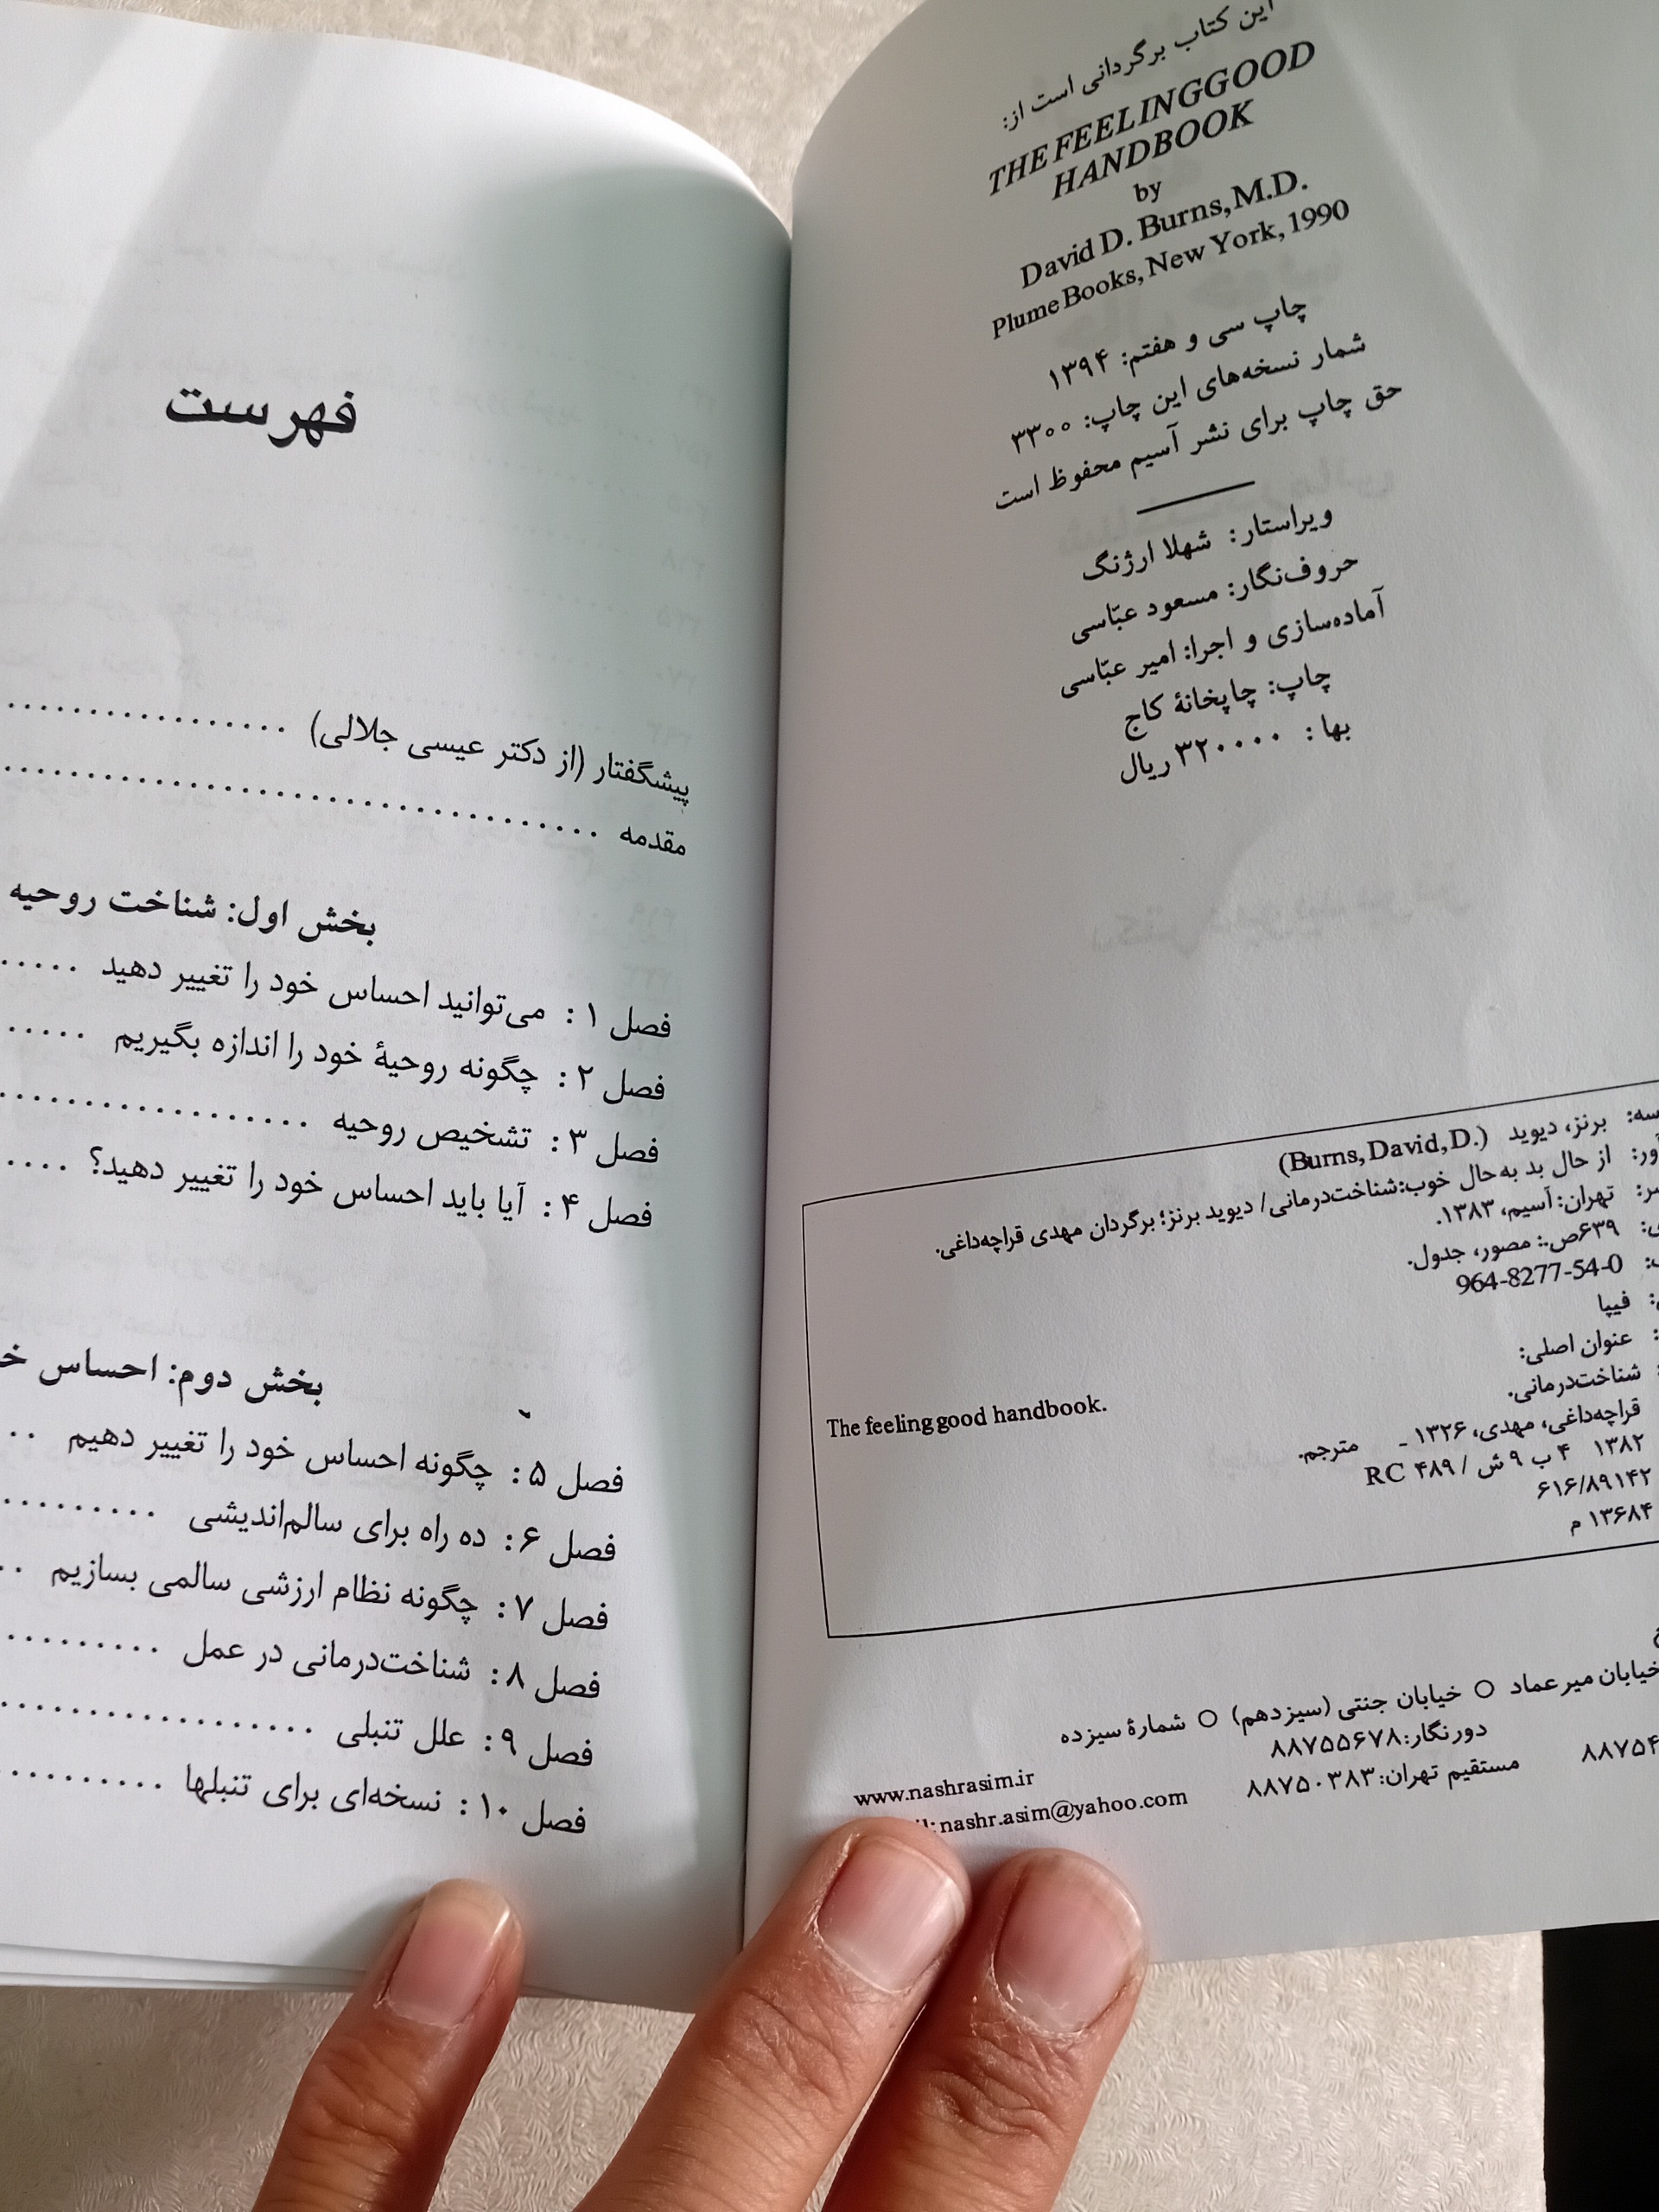 این کتاب برگردانی است از:
THE FEELING GOOD
HANDBOOK
by
David D. Burns, M.D.
Plume Books, New York, 1990
چاپ سی و هفتم: ۱۳۹۴
شمار نسخه‌های این چاپ: ۳۳۰۰
حق چاپ برای نشر آسیم محفوظ است
ویراستار: شهلا ارژنگ
حروف‌نگار: مسعود عبّاسی
آماده‌سازی و اجرا: امیر عبّاسی
چاپ: چاپخانهٔ کاج
بها: ۳۲۰۰۰۰ ریال
برنز، دیوید (Burns, David, D.)
از حال بد به‌حال خوب: شناخت‌درمانی / دیوید برنز؛ برگردان مهدی قراچه‌داغی.
تهران: آسیم، ۱۳۸۳.
۶۳۹ص.: مصور، جدول.
964-8277-54-0
فیپا
عنوان اصلی:
The feeling good handbook.
شناخت‌درمانی.
قراچه‌داغی، مهدی، ۱۳۲۶ - مترجم.
۱۳۸۲ ۴ ب ۹ ش / RC ۴۸۹
۶۱۶/۸۹۱۴۲
۱۳۶۸۴ م
خیابان میرعماد ○ خیابان جنتی (سیزدهم) ○ شمارهٔ سیزده
دورنگار: ۸۸۷۵۵۶۷۸
مستقیم تهران: ۸۸۷۵۰۳۸۳
www.nashrasim.ir
nashr.asim@yahoo.com
فهرست
پیشگفتار (از دکتر عیسی جلالی) ................
مقدمه ................................
بخش اول: شناخت روحیه
فصل ۱: می‌توانید احساس خود را تغییر دهید .....
فصل ۲: چگونه روحیهٔ خود را اندازه بگیریم .....
فصل ۳: تشخیص روحیه .................
فصل ۴: آیا باید احساس خود را تغییر دهید؟ ....
بخش دوم: احساس
فصل ۵: چگونه احساس خود را تغییر دهیم ..
فصل ۶: ده راه برای سالم‌اندیشی .........
فصل ۷: چگونه نظام ارزشی سالمی بسازیم ..
فصل ۸: شناخت‌درمانی در عمل .........
فصل ۹: علل تنبلی .................
فصل ۱۰: نسخه‌ای برای تنبلها .........